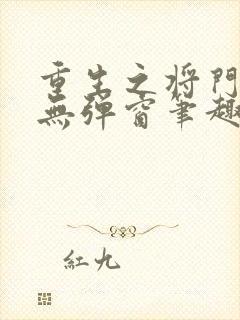 重生之将門
無弹窗笔趣
紅九